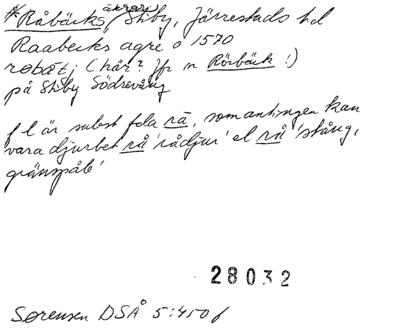 * Råbäcks åkrar, Stiby, Järrestads hd
Raabecks agre o 1570
robätj (hår? Jfr n Rörbäck!)
på Stiby Södrevång
fl är subst fda rå, som antingen kan
vara djurbet rå 'rådjur' el rå 'stång,
gränspåle'
28032
Sørensen DSÅ 5:450 f